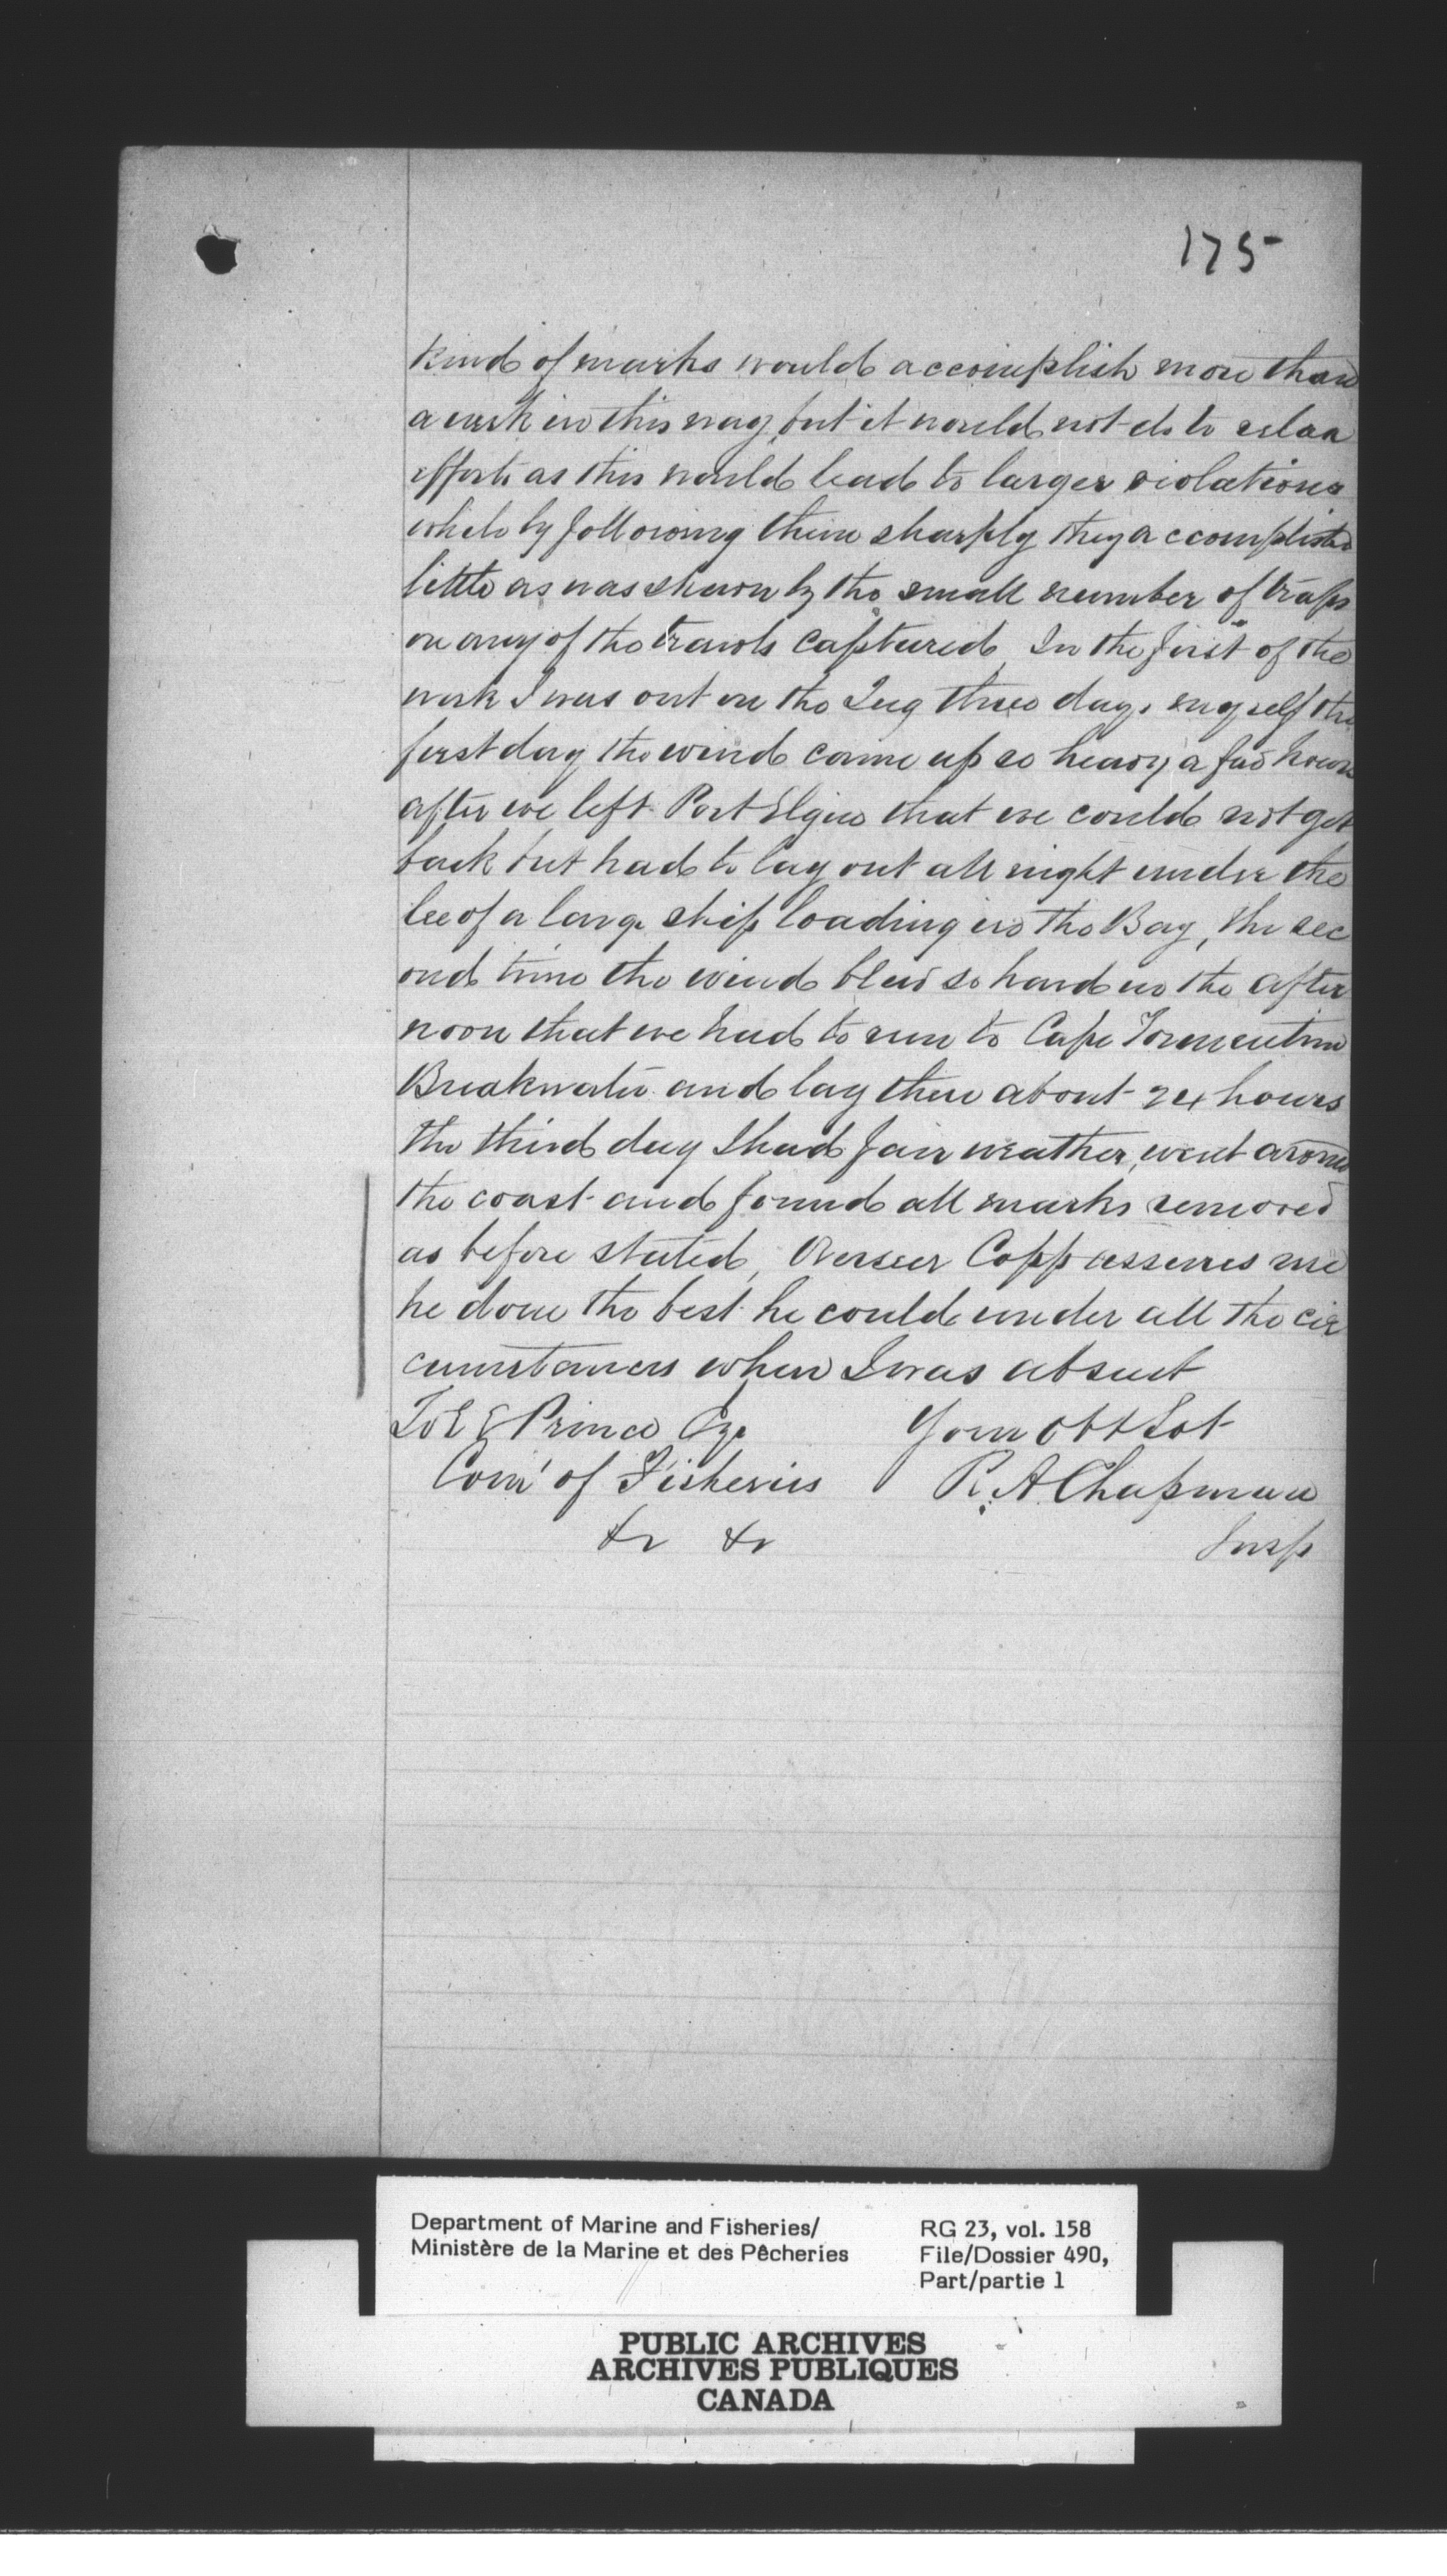 175
kind of marks would accomplish more than
a week in this way, but it would not do to relax
efforts as this would lead to larger violations
while by following them sharply they accomplished
little as was shown by the small number of traps
on any of the trawls captured, In the first of the
work I was out on the Tug three days myself the
first day the wind came up so heavy a few hours
after we left Port Elgin that we could not get
back but had to lay out all night under the
lee of a large ship loading in the Bay, the sec
ond time the wind blew so hard in the after
noon that we had to run to Cape Tormentine
Breakwater and lay there about 24 hours
the third day I had fair weather, went around
the coast and found all marks removed
as before stated, Overseer Copp assures me
he done the best he could under all the cir
cumstances when I was absent
To E E Prince Esq Your Obt Svt
Com' of Fisheries R. A. Chapman
&c &c Insp
Department of Marine and Fisheries/
Ministère de la Marine et des Pêcheries
RG 23, vol. 158
File/Dossier 490,
Part/partie 1
PUBLIC ARCHIVES
ARCHIVES PUBLIQUES
CANADA